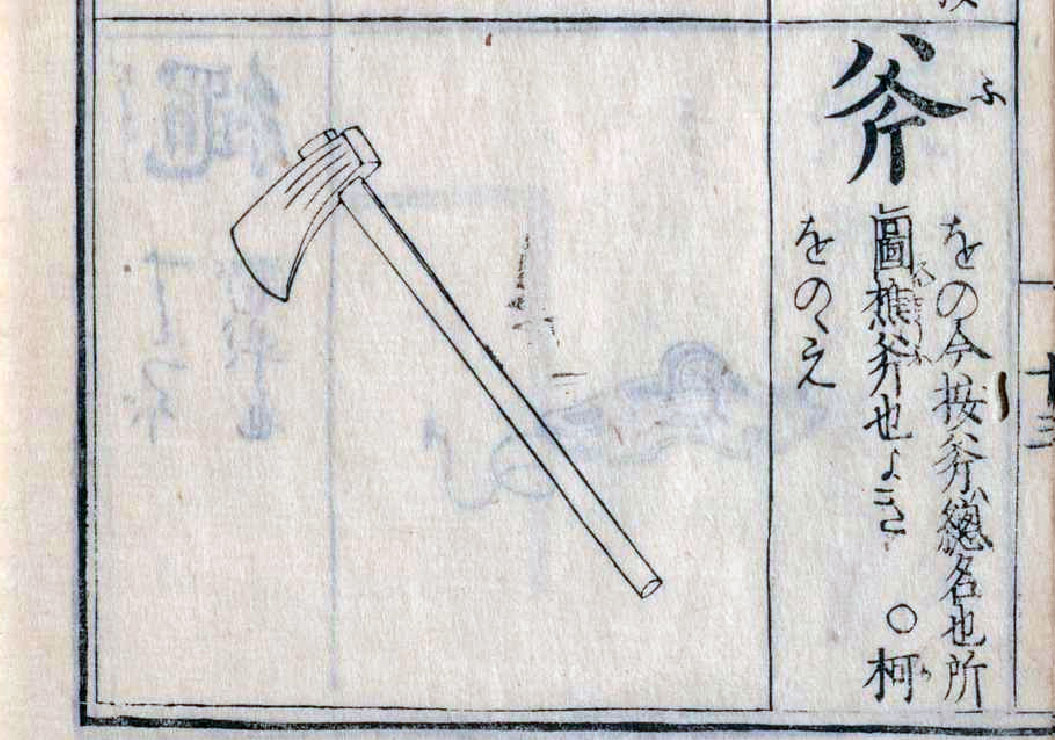 十三
斧
ふ
をの今按斧ハ總名也所
㆑圖樵斧也よき　○柯
か
をのゝえ